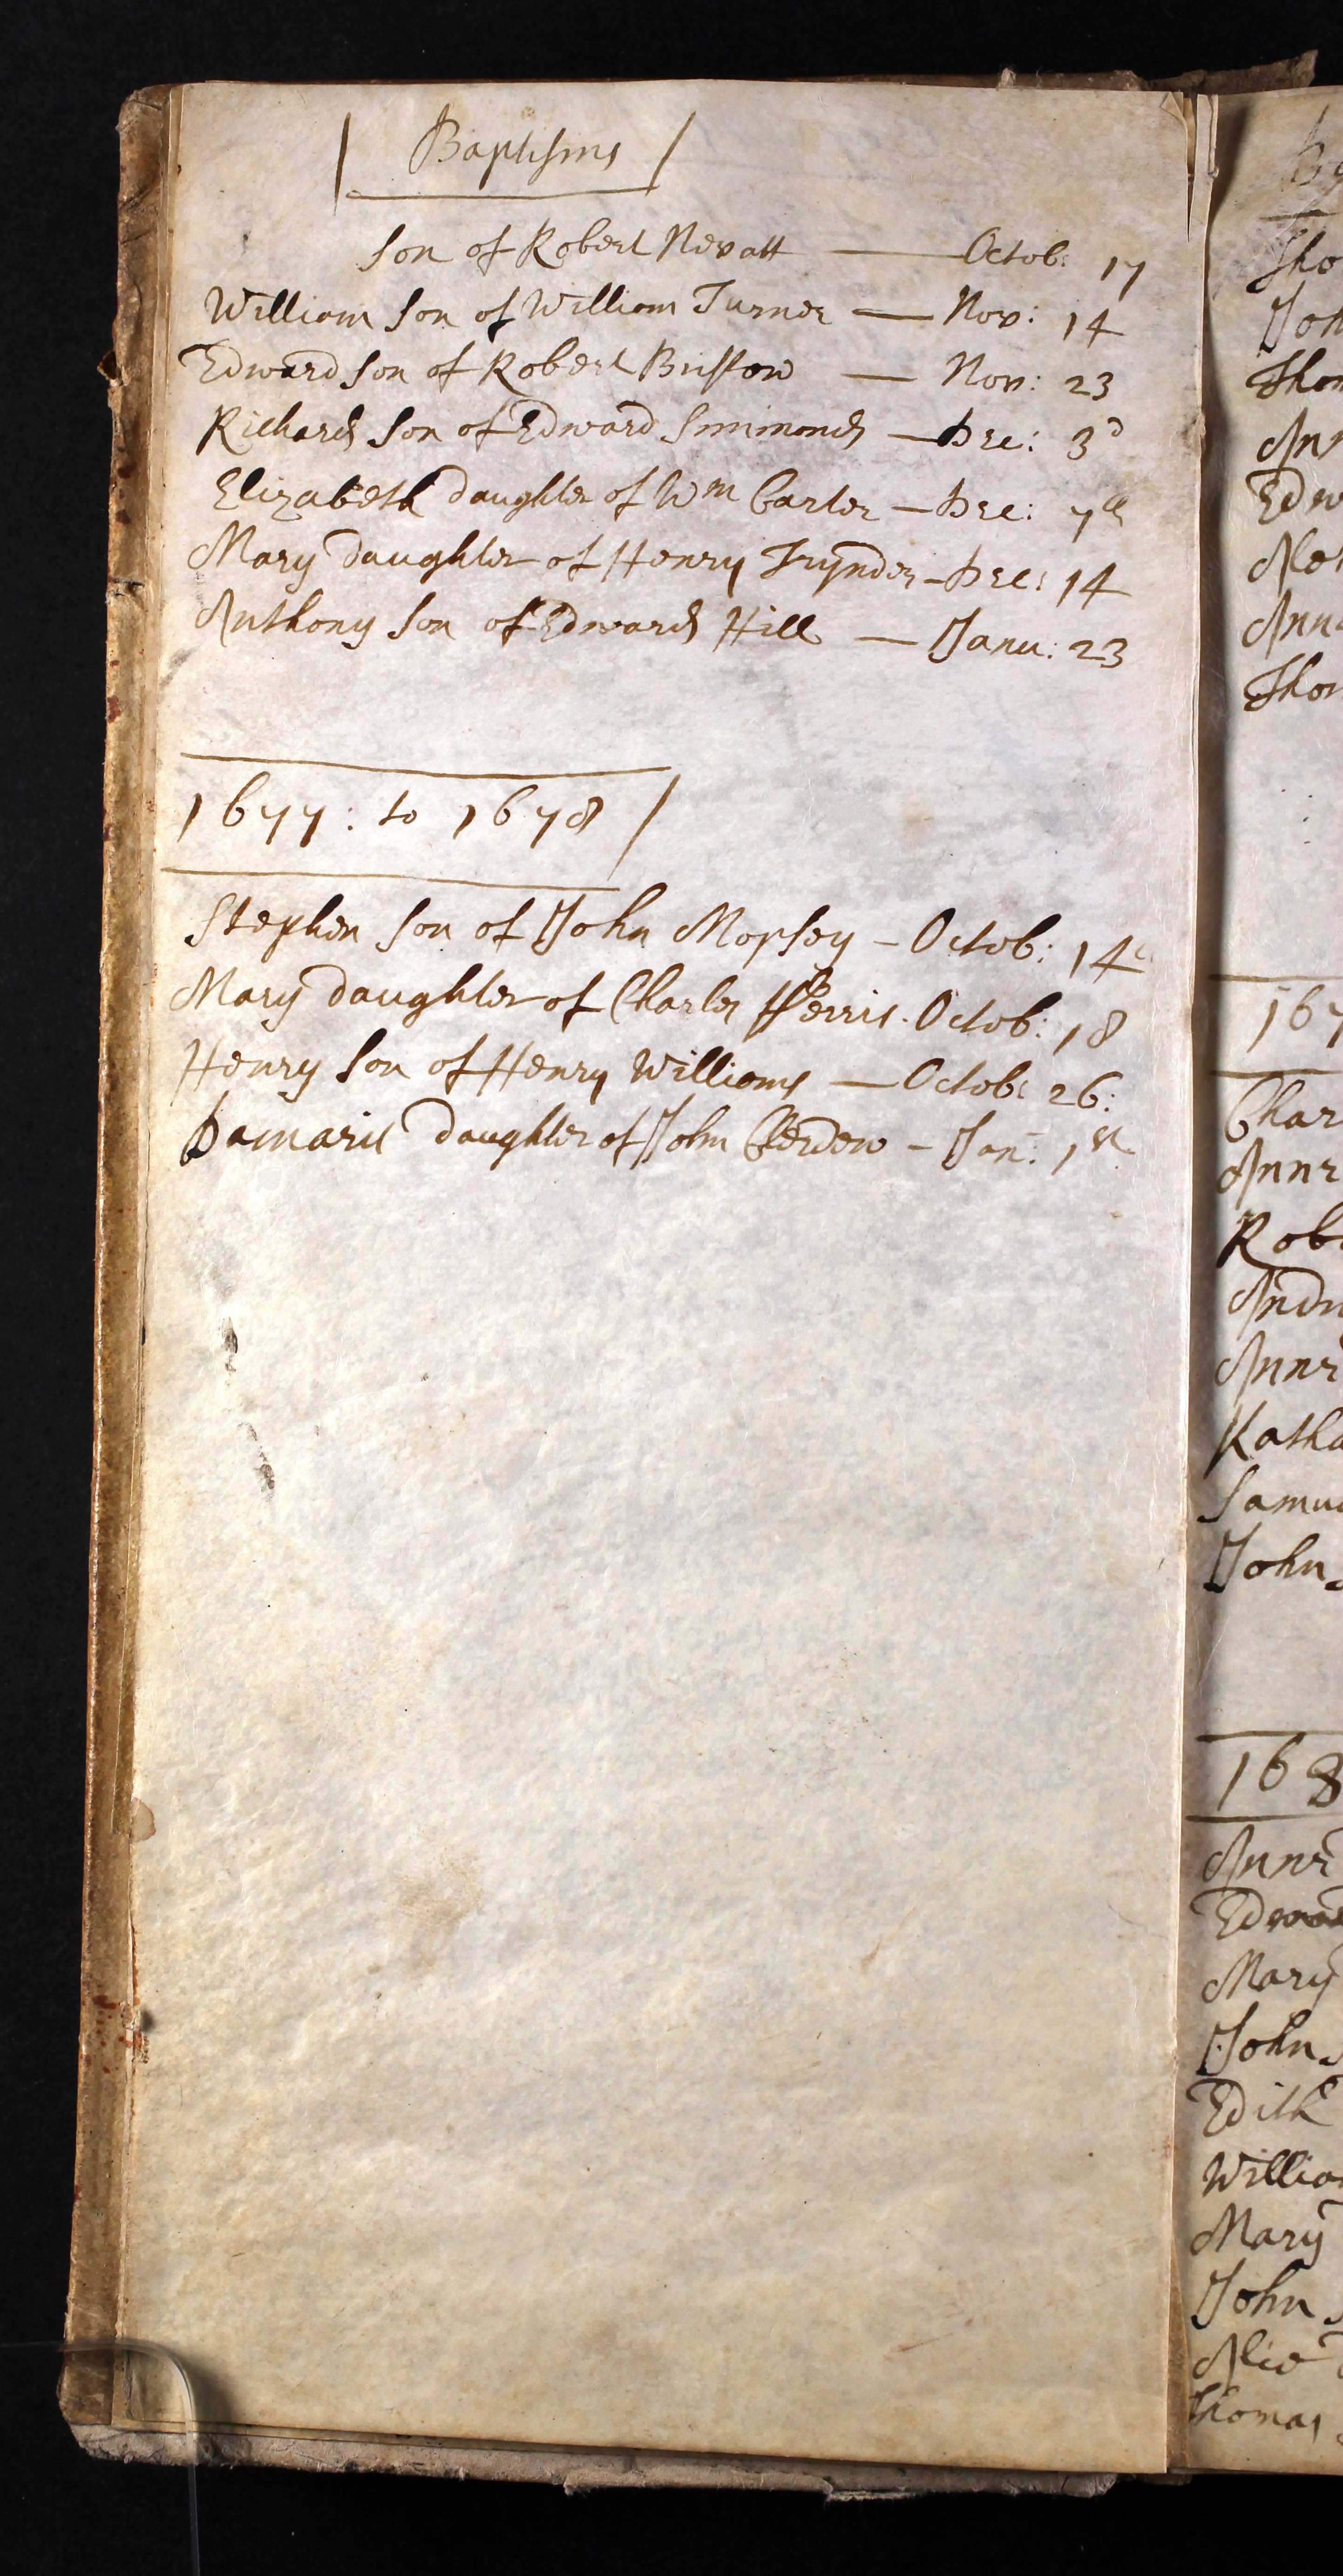 Baptisms
son of Robert Nevatt — Octob: 17
William son of William Turner — Nov: 14
Edward son of Robert Bristow — Nov: 23
Richard son of Edward Simmonds — Dec: 3d
Elizabeth daughter of Wm Carter — Dec: 7th
Mary daughter of Henry Trynder - Dec: 14
Anthony son of Edward Hill — Janu: 23
1677: to 1678
Stephen son of John Mopsey - Octob: 14
Mary daughter of Charles Octob: 18
Henry son of Henry Williams — Octob: 26:
Damaris daughter of John - Jan: 1st
Tho
Joh
Thom
Ann
Edw
Anne
Thom
167
Char
Anne
Robe
Andr
Anne
Katha
Samue
John
168
Anne
Edwar
Mary
John
Edith
Willia
Mary
John
Alic
Thomas